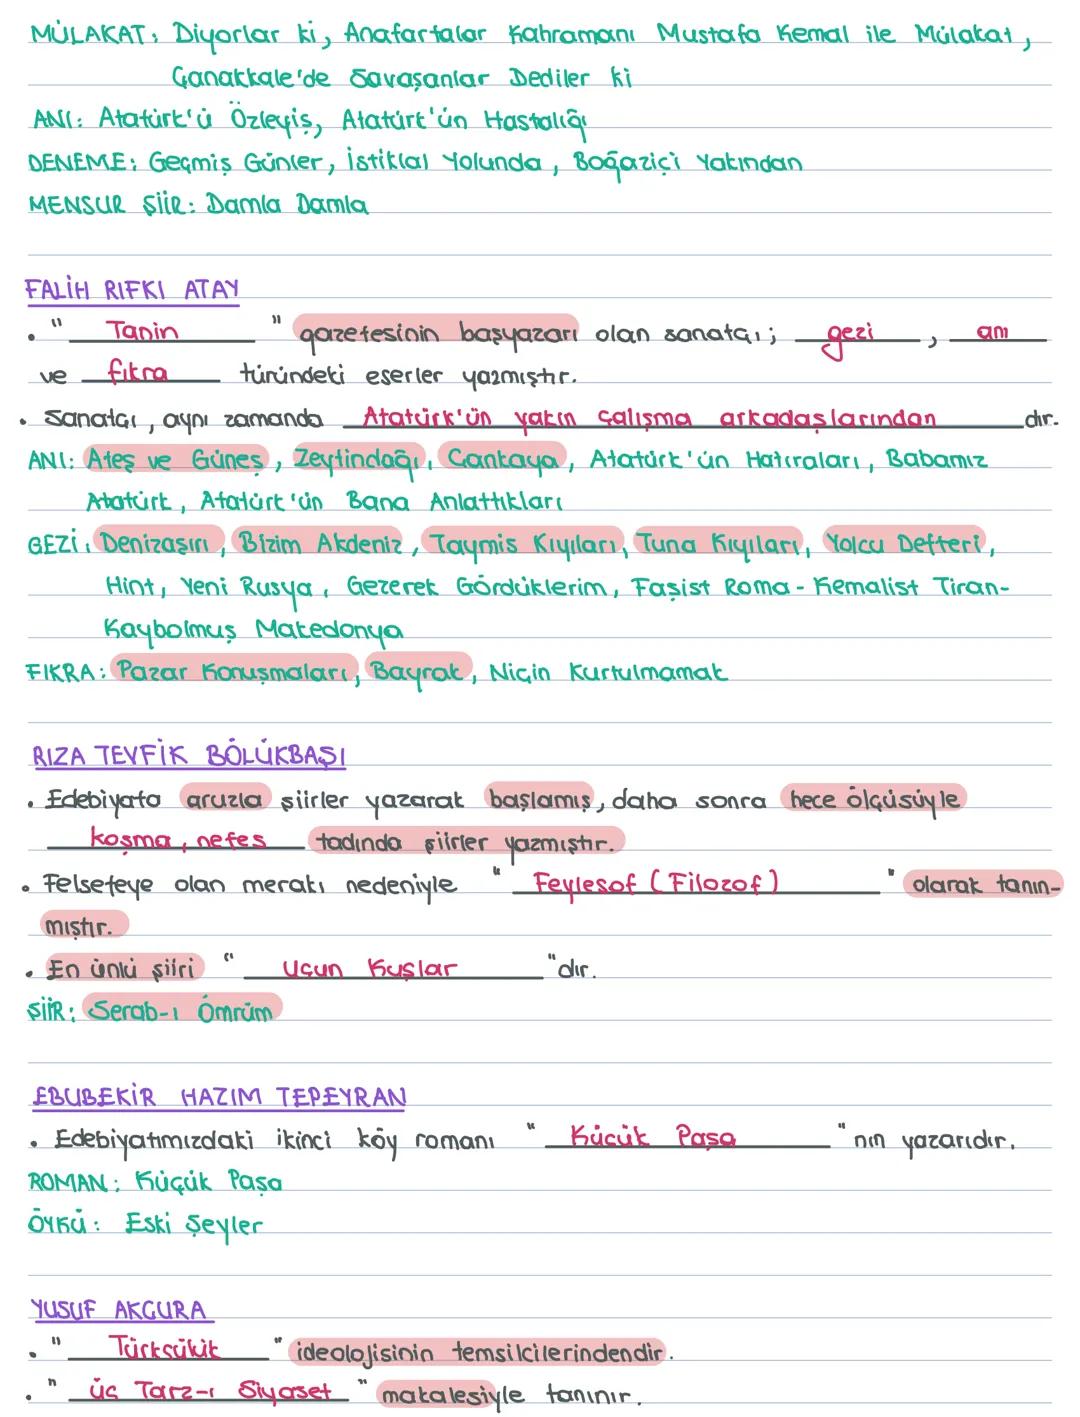 MÜLAKAT: Diyorlar ki, Anafartalar Kahramanı Mustafa Kemal ile Mülakat,
Çanakkale'de Savaşanlar Dediler ki
ANI: Atatürk'ü Özleyiş, Atatürk'ün Hastalığı
DENEME: Geçmiş Günler, İstiklal Yolunda, Boğaziçi Yakından
MENSUR ŞİİR: Damla Damla
FALİH RIFKI ATAY
• " Tanin " gazetesinin başyazarı olan sanatçı; gezi, anı
ve fıkra türündeki eserler yazmıştır.
• Sanatçı, aynı zamanda Atatürk'ün yakın çalışma arkadaşlarından dır.
ANI: Ateş ve Güneş, Zeytindağı, Çankaya, Atatürk'ün Hatıraları, Babamız
Atatürk, Atatürk'ün Bana Anlattıkları
GEZİ: Denizaşırı, Bizim Akdeniz, Taymis Kıyıları, Tuna Kıyıları, Yolcu Defteri,
Hint, Yeni Rusya, Gezerek Gördüklerim, Faşist Roma - Kemalist Tiran-
Kaybolmuş Makedonya
FIKRA: Pazar Konuşmaları, Bayrak, Niçin Kurtulmamak
RIZA TEVFİK BÖLÜKBAŞI
• Edebiyata aruzla şiirler yazarak başlamış, daha sonra hece ölçüsüyle
koşma, nefes tadında şiirler yazmıştır.
• Felsefeye olan merakı nedeniyle " Feylesof (Filozof) " olarak tanın-
mıştır.
• En ünlü şiiri " Uçun Kuşlar "dır.
ŞİİR: Serab-ı Ömrüm
EBUBEKİR HAZIM TEPEYRAN
• Edebiyatımızdaki ikinci köy romanı " Küçük Paşa "nın yazarıdır.
ROMAN: Küçük Paşa
ÖYKÜ: Eski Şeyler
YUSUF AKÇURA
• " Türkçülük " ideolojisinin temsilcilerindendir.
• " üç Tarz-ı Siyaset " makalesiyle tanınır.